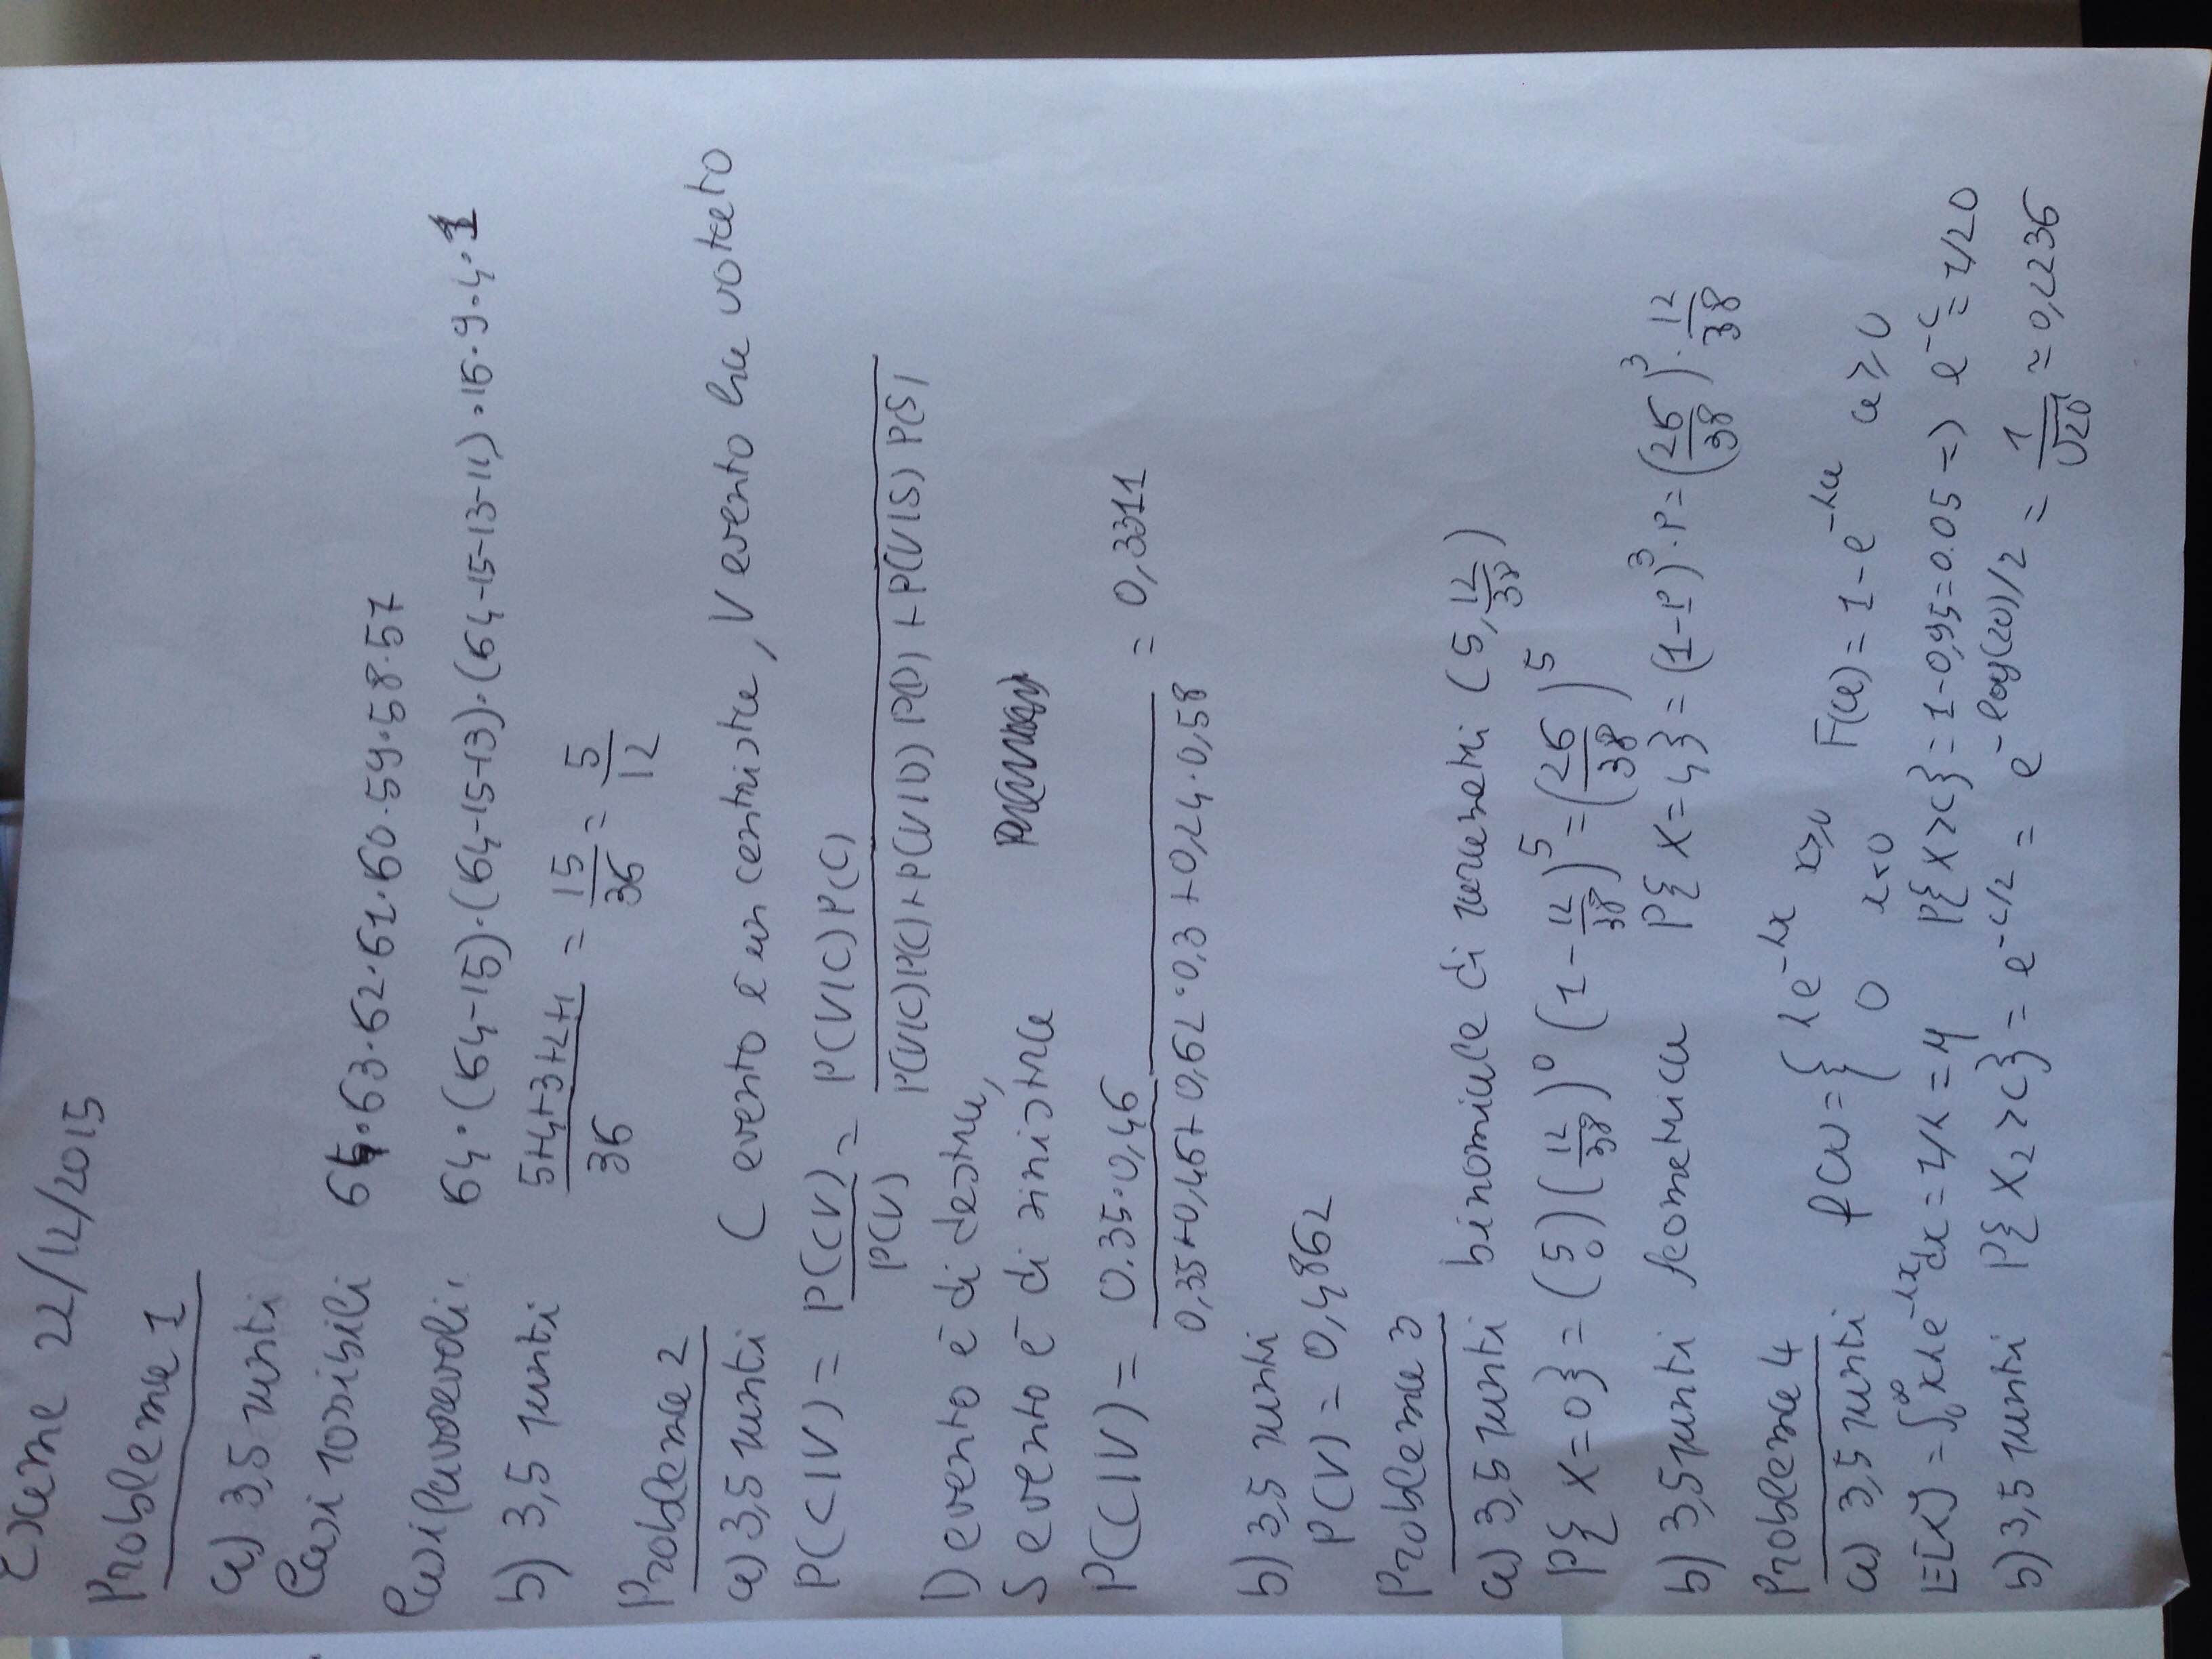 Esame 22/12/2015
Problema 1
a) 3,5 punti
Casi possibili 64·63·62·61·60·59·58·57
Casi favorevoli: 64·(64-15)·(64-15-13)·(64-15-13-11)·16·9·4·1
b) 3,5 punti 5+4+3+2+1/36 = 15/36 = 5/12
Problema 2
a) 3,5 punti C evento è un centrista, V evento ha votato
P(C|V) = P(CV)/P(V) = P(V|C)P(C)/P(V|C)P(C)+P(V|D)P(D)+P(V|S)P(S)
D evento è di destra,
S evento è di sinistra
P(C|V) = 0.35·0,46/0,35·0,46+0,62·0,3+0,24·0,58 = 0,3311
b) 3,5 punti
P(V) = 0,4862
Problema 3
a) 3,5 punti binomiale di parametri (5, 12/38)
P{X=0} = (5 0)(12/38)^0 (1-12/38)^5 = (26/38)^5
b) 3,5 punti geometrica P{X=4} = (1-P)^3·P = (26/38)^3·12/38
Problema 4
a) 3,5 punti f(x) = { λe^-λx x≥0 F(a) = 1-e^-λa a≥0
0 x<0
E[X] = ∫0^∞ xλe^-λx dx = 1/λ = μ P{X>c} = 1-0,95 = 0.05 => e^-c = 1/20
b) 3,5 punti P{X2>c} = e^-c/2 = e^-log(20)/2 = 1/√20 ≈ 0,2236